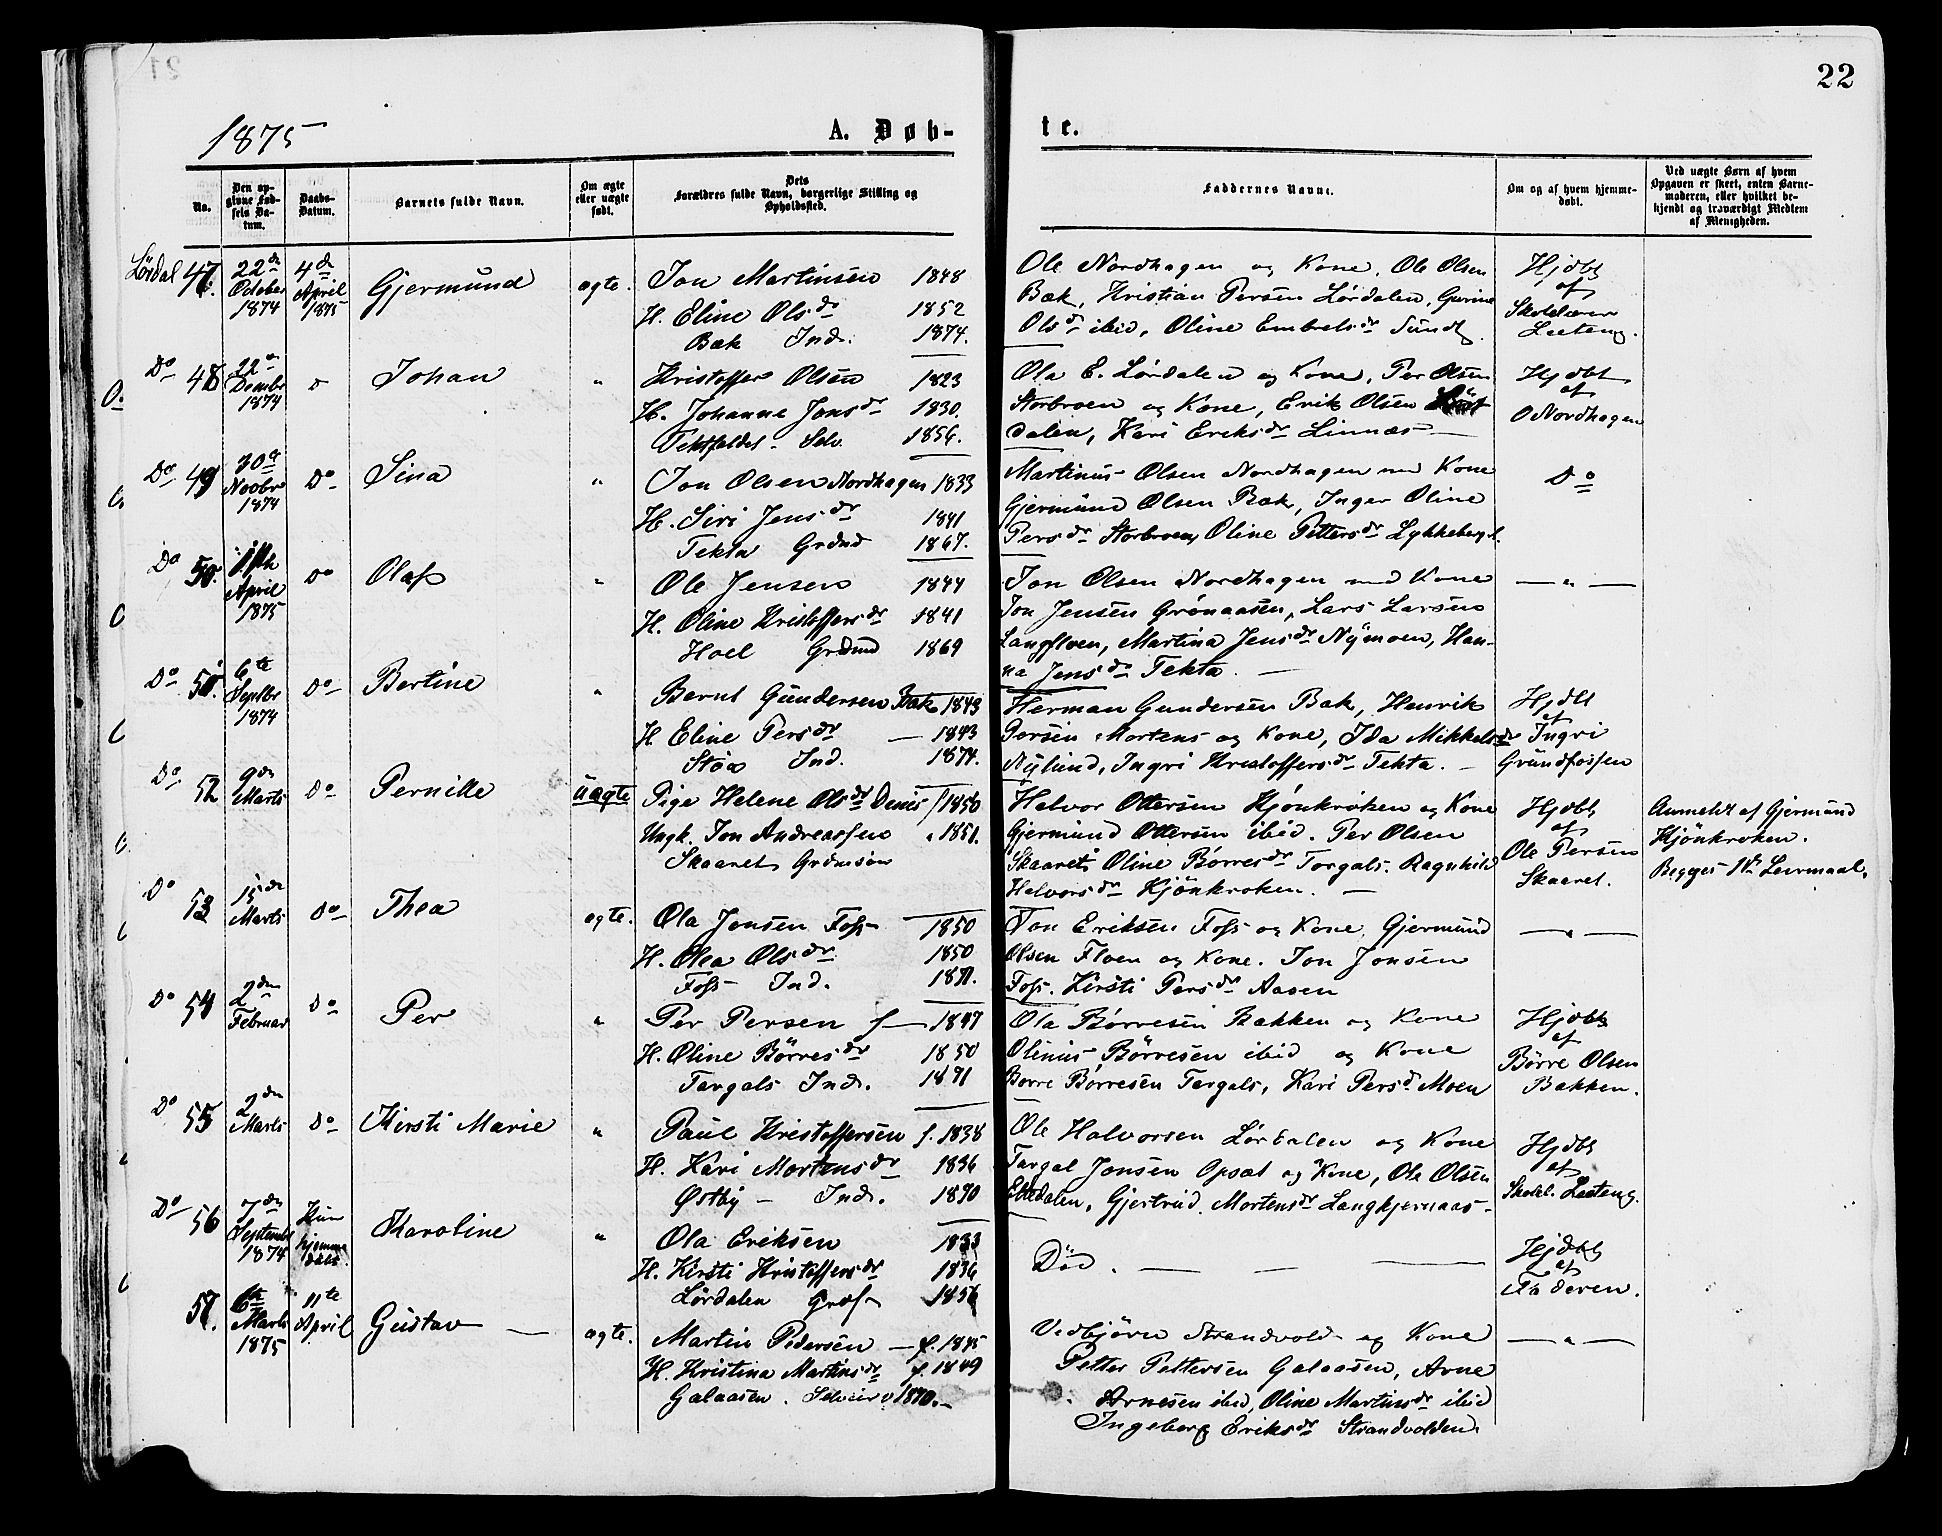 22
1875
A. Døb-
te.
No.
Den op-
givne Fød-
sels Da-
tum.
Daabs-
Datum.
Barnets fulde Navn.
Om ægte
eller uægte
født.
Dets
Forældres fulde Navn, borgerlige Stilling og
Opholdssted.
Faddernes Navne.
Om og af hvem hjemme-
døbt.
Ved uægte Børn af hvem
Opgaven er skeet, enten Barne-
moderen, eller hvilket be-
kjendt og troværdigt Medlem
af Menigheden.
Lørdal 47. 22de October 1874 4de April 1875 Gjermund ægte. Jon Martinsen 1848
H. Eline Olsdr 1852
Bæk Ind. 1874.
Ole Nordhagen og Kone, Ole Olsen
Bæk, Kristian Persen Lørdalen, Gurine
Olsdr ibid, Oline Embretsdr Sundt.
Hjdbt
af
Skolelærer
Leeteng.
Do 48 22de Dembr 1874 Do Johan " Kristoffer Olsen 1823
H. Johanne Jonsdr 1830.
Selv. 1856.
Ola E. Lørdalen og Kone, Per Olsen
Storbroen og Kone, Erik Olsen
dalen, Kari Eriksdr Linnæs
Hjdbt
af
O Nordhagen
Do 49 30te Novbr 1874 Do Sina " Jon Olsen Nordhagen 1833
H. Siri Jensdr 1841
Tekta Grdmd 1867.
Martinus Olsen Nordhagen med Kone
Gjermund Olsen Bæk, Inger Oline
Persdr Storbroen, Oline Pettersdr Lykkeberget.
Do
Do 50. 1ste April 1875 Do Olaf " Ole Jensen 1844
H. Oline Kristoffersdr 1841
Hoel Grdmd 1869
Jon Olsen Nordhagen med Kone
Jon Jensen Grønaasen, Lars Larsen
Langfloen, Martina Jensdr Nymoen, Han-
na Jensdr Tekta.
— " —
Do 51. 6te Septbr 1874 Do Bertine " Bernt Gundersen Bæk 1843
H Eline Persdr — 1843
Støa Ind. 1874.
Herman Gundersen Bæk, Henrik
Persen Mortens og Kone, Ida Mikkelsdr
Nylund, Ingri Kristoffersdr Tekta.
Hjdbt
af
Ingri
Grundfossen
Do 52 9de Marts Do Pernille uægte Pige Helene Olsdr Denes f 1850
Ungk. Jon Andreassen " 1851.
Skaaret, Grdmsøn
Halvor Ottersen Kjönkroken og Kone
Gjermund Ottersen ibid. Per Olsen
Skaaret, Oline Børresdr Torgals. Ragnhild
Halvorsdr Kjönkroken.
Hjdbt
af
Ole Persen
Skaaret.
Anmeldt af Gjermund
Kjönkroken.
Begges 1ste Leiermaal.
Do 53 15de Marts Do Thea ægte. Ola Jonsen Foss 1850
H. Olea Olsdr 1850
Foss Ind. 1871.
Jon Eriksen Foss og Kone, Gjermund
Olsen Floen og Kone. Jon Jonsen
Foss. Kirsti Persdr Aasen
— " —
Do 54 2den Februar Do Per " Per Persen f 1847
H. Oline Børresdr 1850
Torgals Ind. 1871
Ola Børresen Bakken og Kone
Olinus Børresen ibid og Kone
Borre Børresen Torgals, Kari Persdr Moen
Hjdbt
af
Børre Olsen
Bakken.
Do 55 2den Marts Do Kirsti Marie " Paul Kristoffersen f. 1838
H. Kari Mortensdr 1836
Østby — Ind. 1870
Ole Halvorsen Lørdalen og Kone
Torgal Jonsen Opsæt og Kone, Ole Olsen
Eltdalen, Gjertrud Mortensdr Langkjernaas
Hjdbt
af
Skolel. Leeteng.
Do 56 7de September 1874 Kun hjemmedøbt. Karoline " Ola Eriksen 1833
H. Kirsti Kristoffersdr 1836
Lørdalen 1856
Död. — — —
Hjdbt
af
Faderen.
57. 6te Marts 1875 11te April Gustav — ægte. Martin Pedersen — f. 1845
H. Kristina Martinsdr f. 1849
Galaasen. Selveier v 1870.
Vedbjörn Strandvold og Kone
Petter Pettersen Galaasen, Arne
Arnesen ibid, Oline Martinsdr ibid
Ingeborg Eriksdr Strandvolden.
— " —